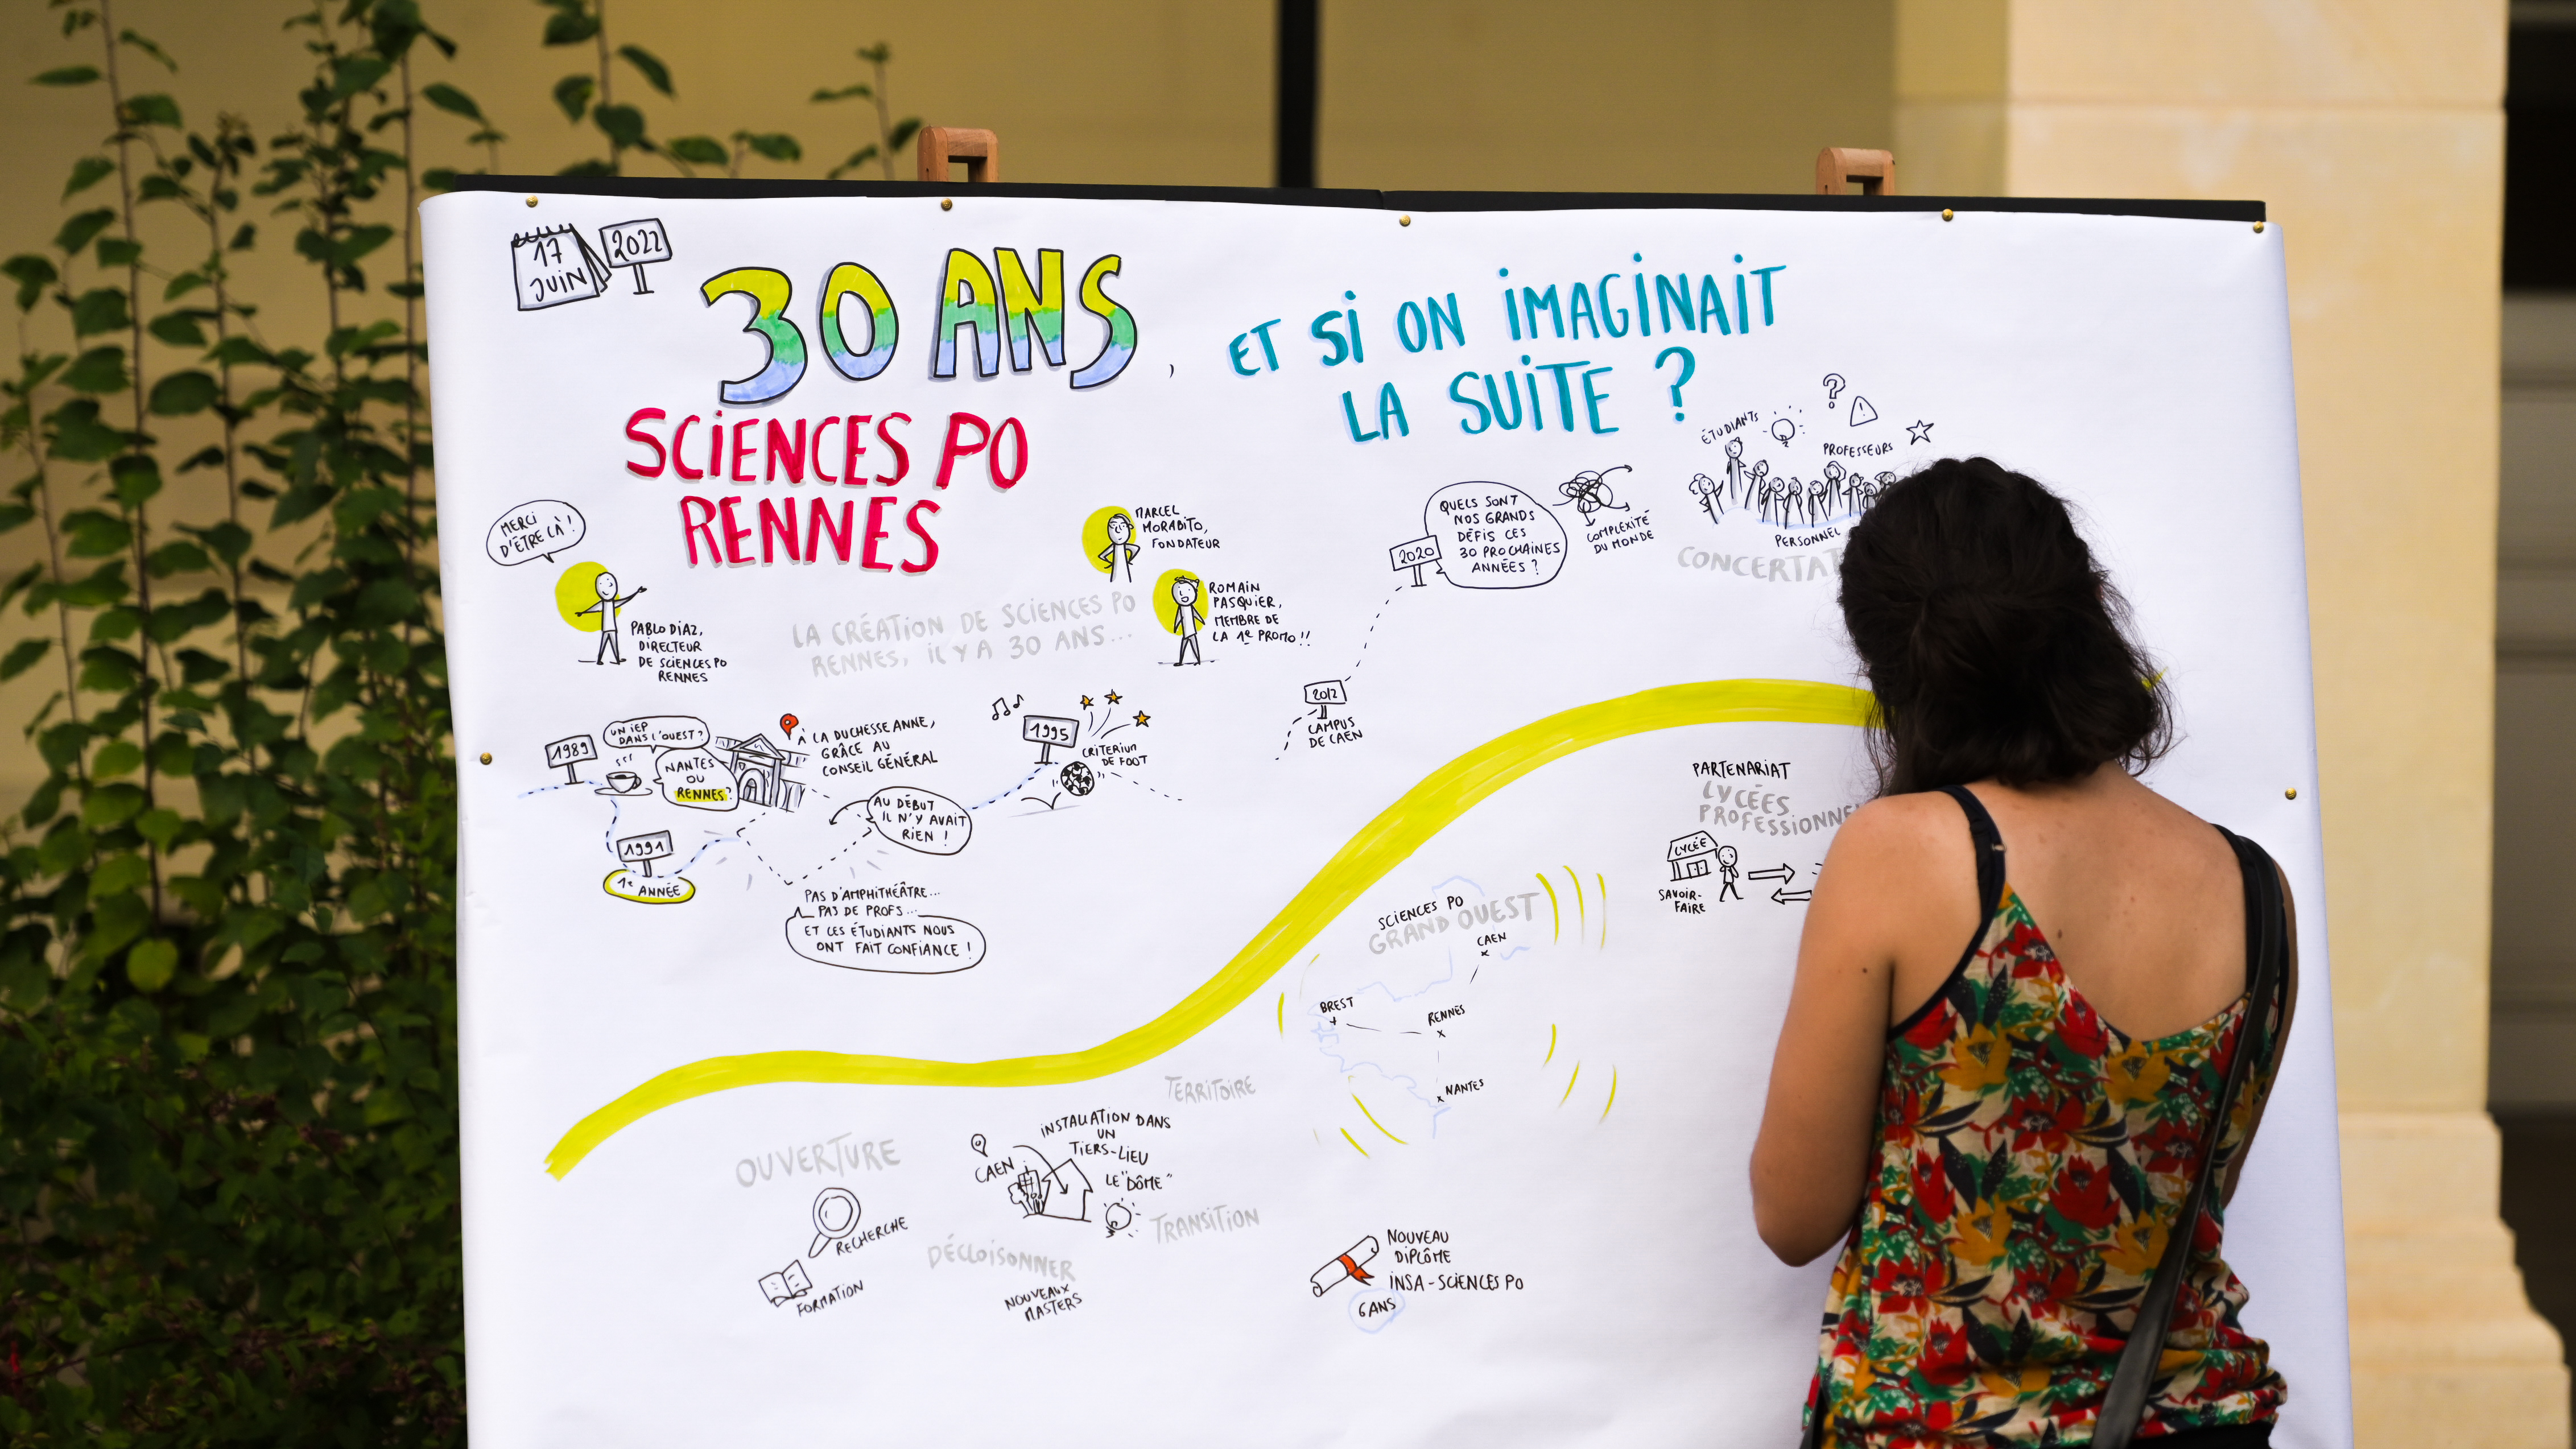 17
JUIN
2022
30 ANS,
SCIENCES PO
RENNES
ET SI ON IMAGINAIT
LA SUITE ?
MERCI
D'ÊTRE LÀ !
PABLO DIAZ,
DIRECTEUR
DE SCIENCES PO
RENNES
LA CRÉATION DE SCIENCES PO
RENNES, IL Y A 30 ANS...
MARCEL
MORABITO,
FONDATEUR
ROMAIN
PASQUIER,
MEMBRE DE
LA 1e PROMO !!
1989
UN IEP
DANS L'OUEST ?
NANTES
OU
RENNES ?
À LA DUCHESSE ANNE,
GRÂCE AU
CONSEIL GÉNÉRAL
1991
1e ANNÉE
AU DÉBUT
IL N'Y AVAIT
RIEN !
PAS D'AMPHITHÉÂTRE...
PAS DE PROFS...
ET CES ÉTUDIANTS NOUS
ONT FAIT CONFIANCE !
1995
CRITERIUM
DE FOOT
2012
CAMPUS
DE CAEN
2020
QUELS SONT
NOS GRANDS
DÉFIS CES
30 PROCHAINES
ANNÉES ?
COMPLEXITÉ
DU MONDE
ÉTUDIANTS
?
!
PROFESSEURS
PERSONNEL
CONCERTAT
PARTENARIAT
LYCÉES
PROFESSIONNE
LYCÉE
SAVOIR-
FAIRE
SCIENCES PO
GRAND OUEST
CAEN
BREST
RENNES
NANTES
TERRITOIRE
OUVERTURE
RECHERCHE
FORMATION
CAEN
INSTALLATION DANS
UN
TIERS-LIEU
LE "DÔME"
TRANSITION
DÉCLOISONNER
NOUVEAUX
MASTERS
NOUVEAU
DIPLÔME
INSA - SCIENCES PO
6 ANS